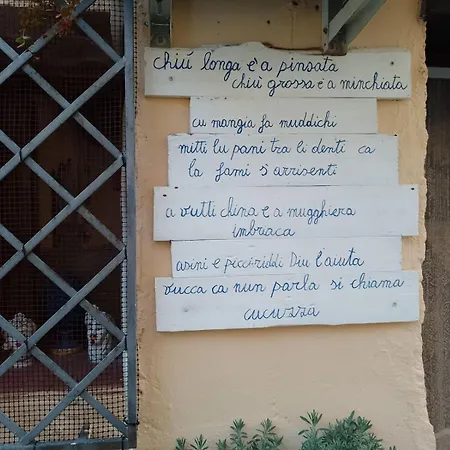 chiú longa è a pinsata
chiù grossa è a minchiata
cu mangia fa muddichi
mitti lu pani tra li denti ca
la fami s'arrisenti
a vutti china e a mugghiera
imbriaca
asini e picciriddi Diu l'aiuta
vucca ca nun parla si chiama
cucuzza